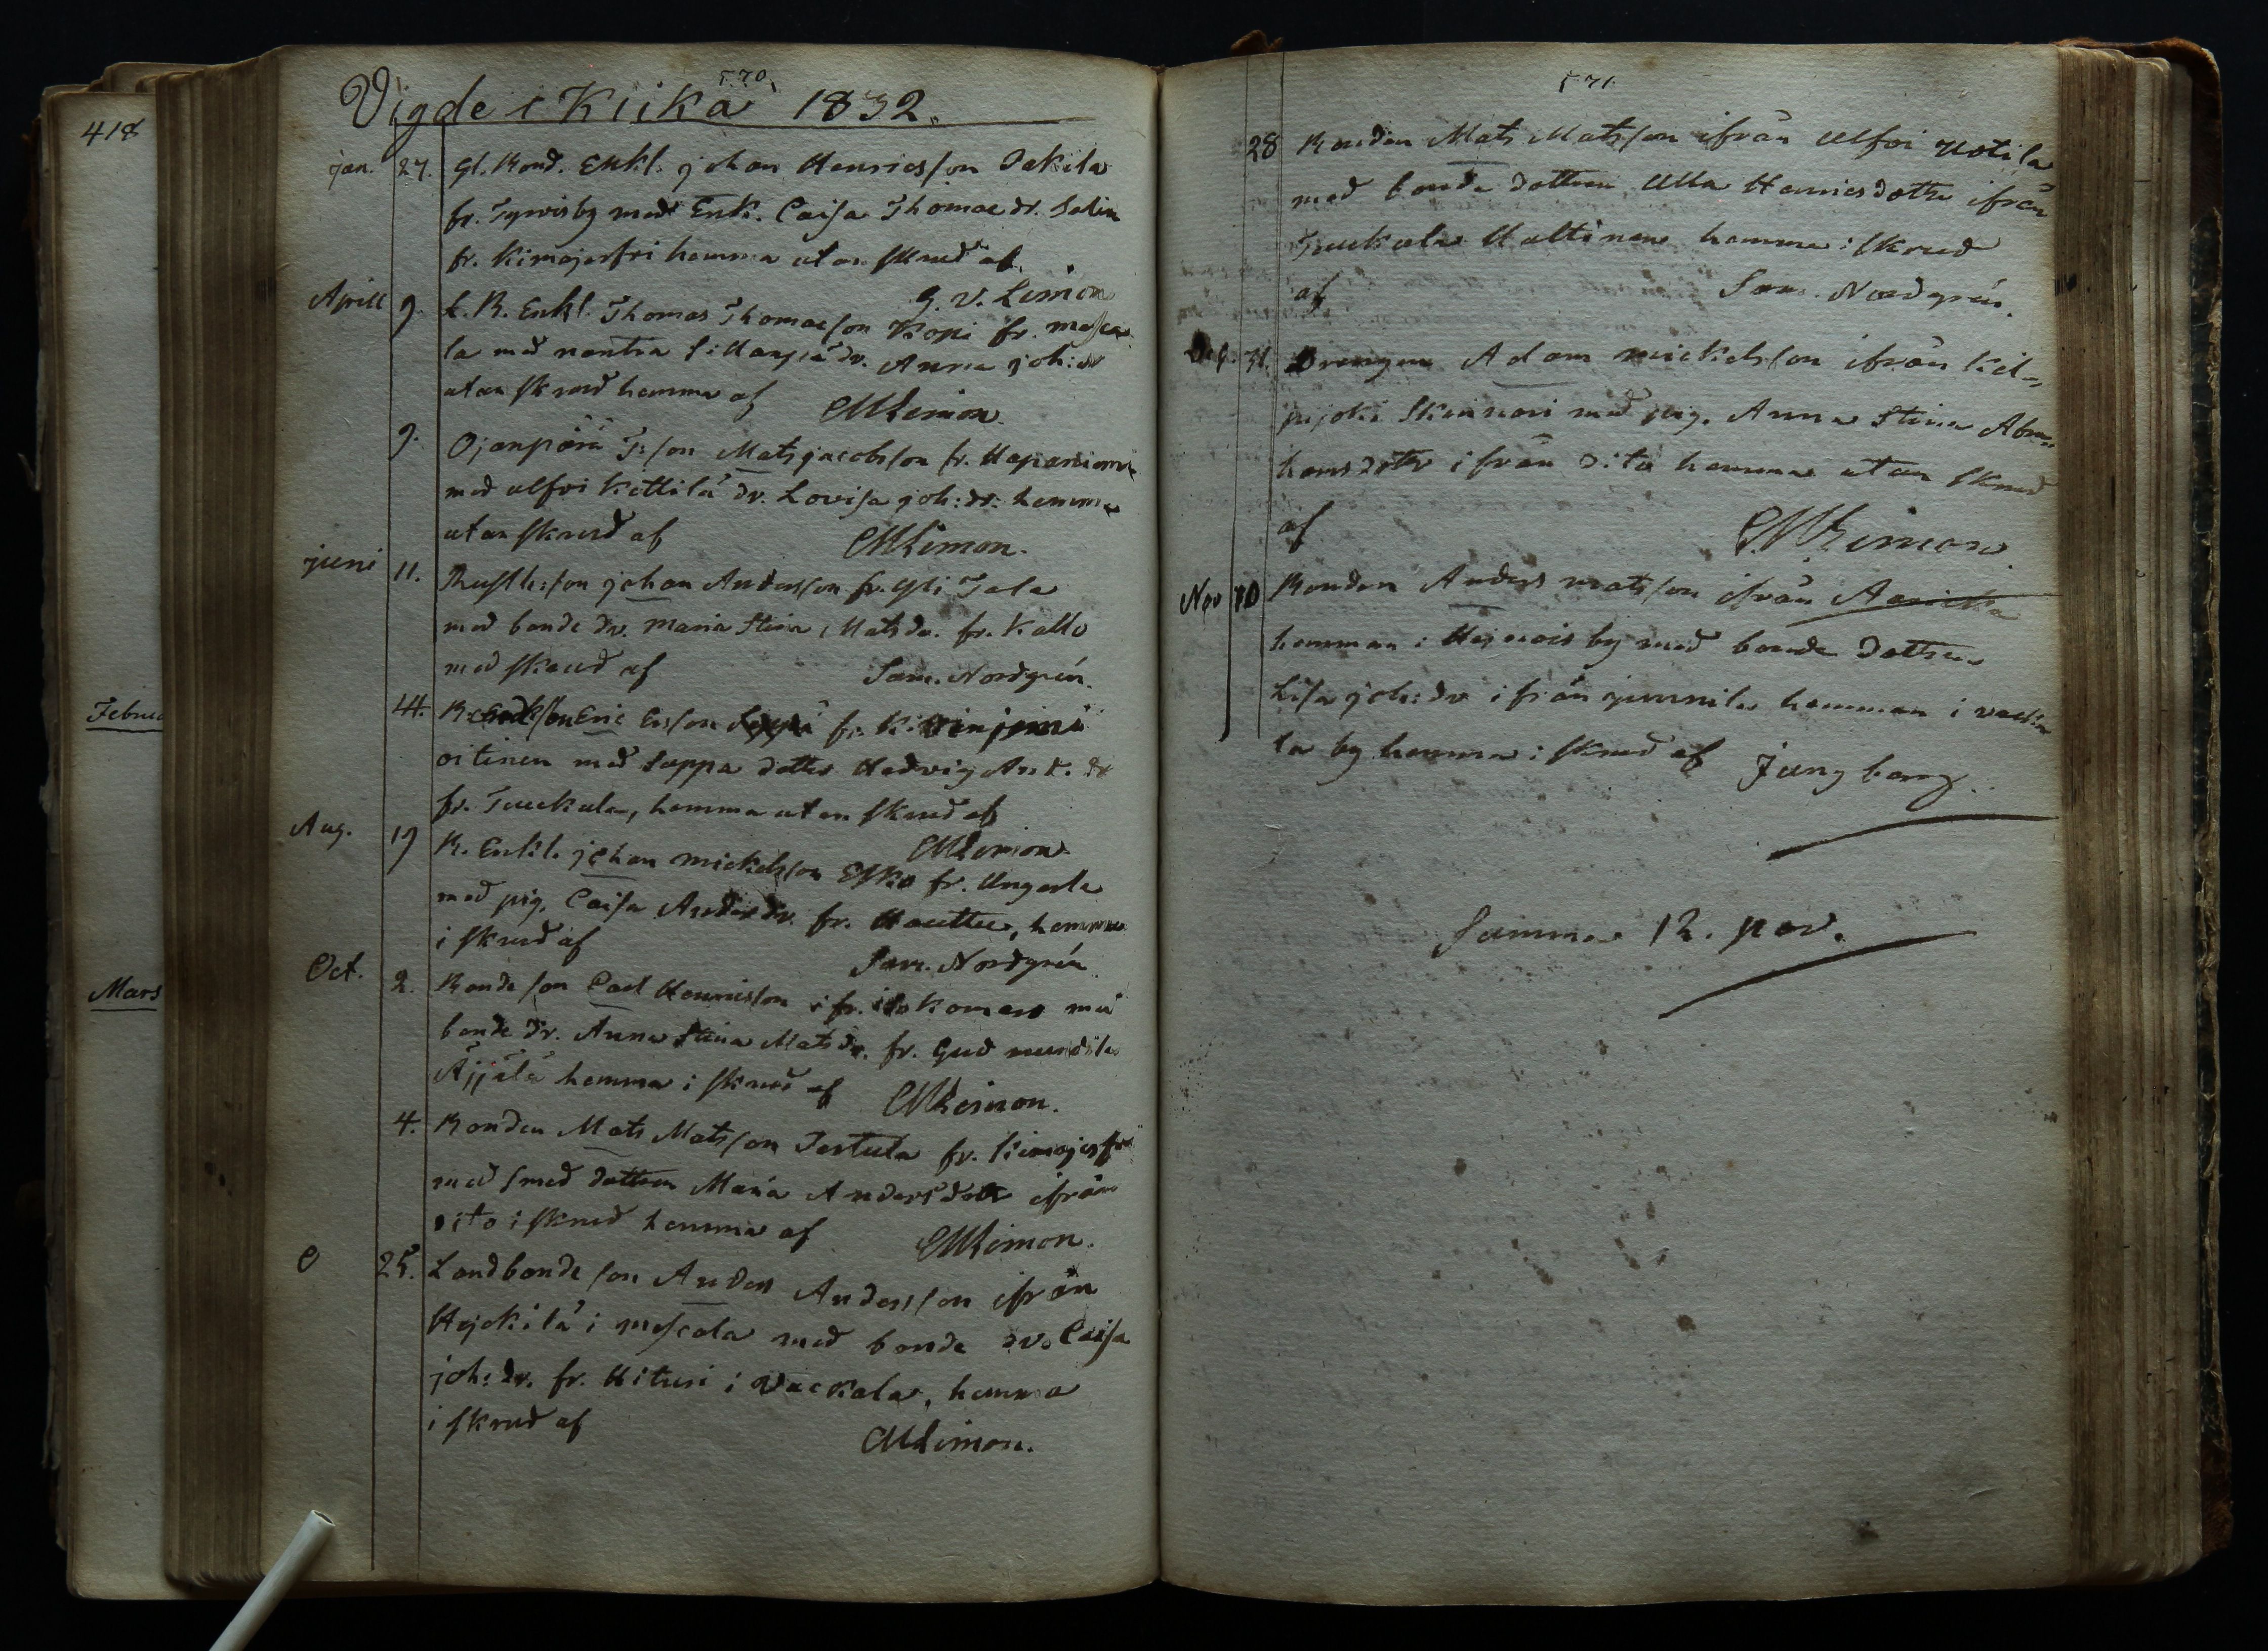 418
Februa
Mars
570
Vigde i Kiika 1832.
jan. 27. Gl. Bond. Enkl. johan Henricsson
fr. Tyrvisby med Enk. Caisa Thomae dr. Salin
fr. Kimajerfvi hemma utan skrud af
G. V. Limon
Aprill 9. Enkl. Thomas Thomasson Kopi fr. mosca
la med dr. Anna joh: dr
utan skrud hemma af
CMLimon.
9. Ojanperä T:son Mats jacobsson fr. Haparniemi
med ulfvi Kettilä dr. Lovisa joh: dr: hemma
utan skrud af CMLimon.
juni 11. Rusth:son johan Andersson fr.
med bonde dr. Maria Stina Mats dr. fr. Kallo
med skrud af Sam. Nordgrén.
14. Eric Ersson fr.
oitinen med Soppa dotter Hedvig And. dr
fr. Tuukala, hemma utan skrud af
CMLimon
Aug. 19 B. Enkl. johan mickelsson Esko fr. Ungarla
med pig. Caisa Anders dr. fr. Houttu, hemma
i skrud af
Sam. Nordgrén
Oct. 2. Bonde son Carl Henricsson ifr. med
bonde dr. Anna Stina Mats dr. fr.
Äijälä hemma i skrud af CMLimon.
4. Bonden Mats Matsson Tertula fr. Kimajerfvi
med smed dottren Maria Andersdotr ifrån
dito i skrud hemma af CMLimon.
25. Landbonde son Anders Andersson ifrån
Hejckilä i moscala med bonde dr. Caisa
joh: dr. fr. Hituri i Vackala, hemma
i skrud af
CMLimon.
571
28 Bonden Mats Matsson ifrån Ulfvi Uotila
med bonde dottren Ulla Henricsdottr ifrån
Tuukala Uoltinen hemma i skrud
af Sam. Nordgrén.
31. Drengen Adam mickelsson ifrån Kil-
pijoki Skinnari med pig. Anna Stina Abra-
hamsdotr ifrån dito hemma utan skrud
af CMLimon
Nov 10 Bonden Anders matsson ifrån
hemman i Heinois by med bonde dottren
Lisa joh: dr ifrån junnila hemman i vacka
la by hemma i skrud af Jungberg.
Summa 12. par.